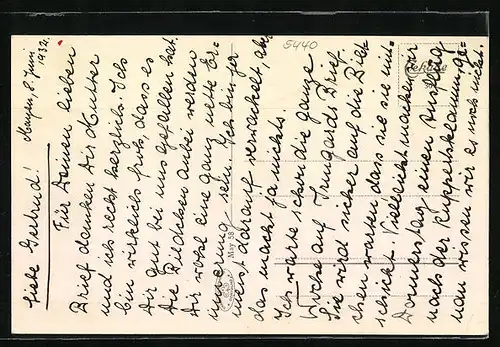 Mengen, 8. Juni 1932.
Liebe Gertrud!
Für Deinen lieben
Brief danken Dir Mutter
und ich recht herzlich. Ich
bin wirklich froh, dass es
Dir gut bei uns gefallen hat.
Die Bildchen anbei werden
Dir wohl eine ganz nette Er-
innerung sein. Ich bin zwar
meist darauf verwackelt, aber
das macht ja nichts.
Ich warte schon die ganze
Woche auf Irmgards Brief.
Sie wird sicher auf die Bild-
chen warten dass sie sie mit-
schickt. Vielleicht machen wir
Donnerstag einen Ausflug
nach der
nau wissen wir es noch nicht.
5440
May 58